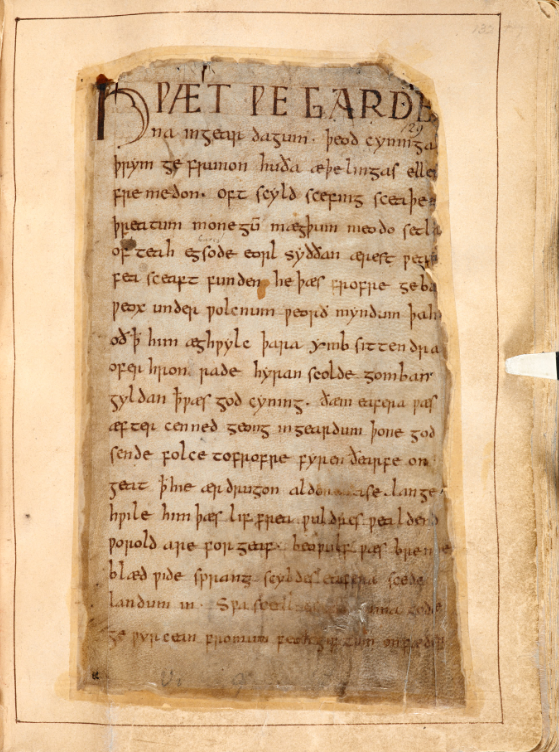 HǷÆT ǷE GARDE
129
na ingear dagum. þeod cyninga
þrym ge frunon huða æþelingas elle
fremedon. oft scyld scefing sceaþe
þreatum monegū mægþum meodo setla
of teah egsode eorl syððan ærest
fea sceaft funden he þæs frofre geba
ƿeox under ƿolcnum ƿeorð myndum þah
oð ꝥ him æghƿylc þara ymb sittendra
ofer hron rade hyran scolde gomban
gyldan ꝥ ƿæs god cyning. ðæm eafera ƿæs
æfter cenned geong ingeardum þone god
sende folce tofrofre fyren ðearfe on
geat ꝥ hie ær drugon aldor ase. lange
hƿile him þæs lif frea ƿuldres ƿealdend
ƿorold are for geaf. beoƿulf ƿæs breme
blæd ƿide sprang scyldes eafera scede
landum in. Sƿa gode
ge ƿyrcean fromum feohgiftum on fæder